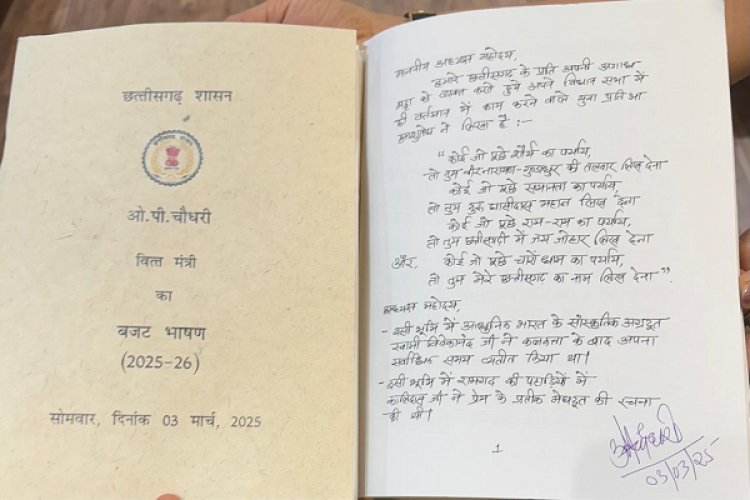 छत्तीसगढ़ शासन
ओ.पी.चौधरी
वित्त मंत्री
का
बजट भाषण
(2025-26)
सोमवार, दिनांक 03 मार्च, 2025
माननीय अध्यक्ष महोदय,
हमारे छत्तीसगढ़ के प्रति अपनी अगाध
को व्यक्त करते हुये अपने विधान सभा में
ही वर्तमान में काम करने वाले युवा
ने लिखा है :-
"कोई जो पूछे शौर्य का पर्याय,
तो तुम वीरनारायण-गुण्डाधुर की तलवार लिख देना
कोई जो पूछे समानता का पर्याय,
तो तुम गुरु घासीदास महान लिख देना
कोई जो पूछे राम-राम का पर्याय,
तो तुम छत्तीसगढ़ी में जय जोहार लिख देना
और, कोई जो पूछे चारों धाम का पर्याय,
तो तुम मेरे छत्तीसगढ़ का नाम लिख देना-"
अध्यक्ष महोदय,
- इसी भूमि में आधुनिक भारत के सांस्कृतिक अग्रदूत
स्वामी विवेकानंद जी ने कलकत्ता के बाद अपना
सर्वाधिक समय व्यतीत किया था।
- इसी भूमि में रामगढ़ की पहाड़ियों में
कालिदास जी ने प्रेम के प्रतीक मेघदूत की रचना
की थी।
1
03/03/25